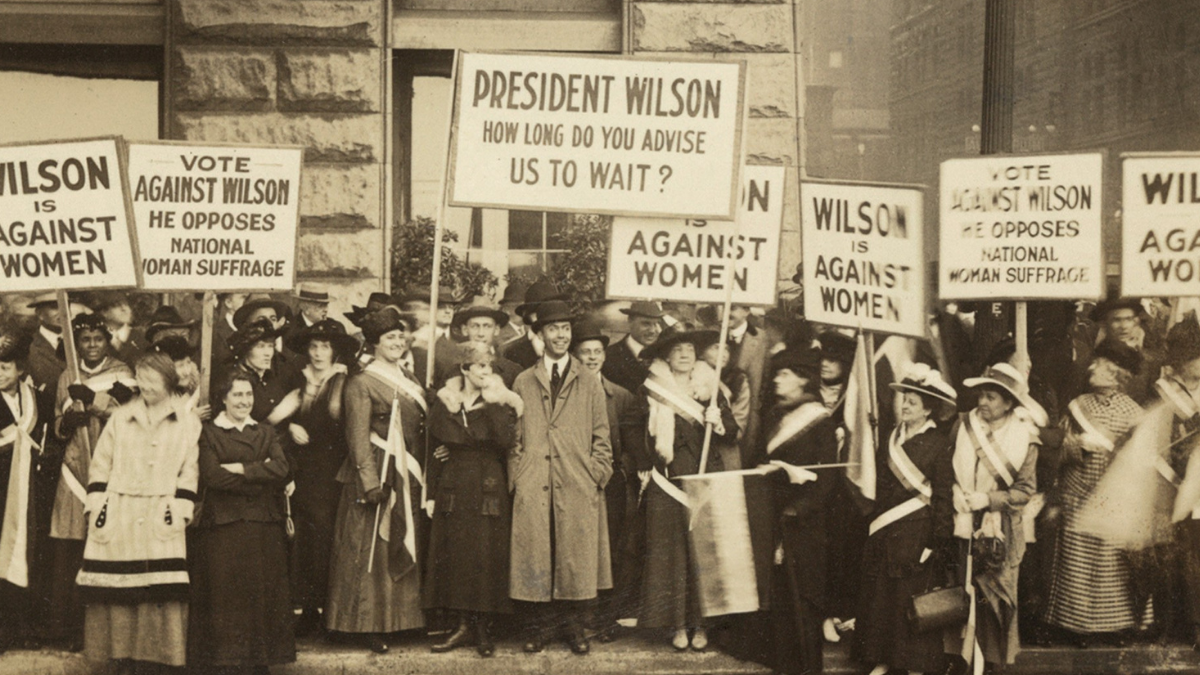 WILSON
IS
AGAINST
WOMEN
VOTE
AGAINST WILSON
HE OPPOSES
NATIONAL
WOMAN SUFFRAGE
PRESIDENT WILSON
HOW LONG DO YOU ADVISE
US TO WAIT?
IS
AGAINST
WOMEN
WILSON
IS
AGAINST
WOMEN
VOTE
AGAINST WILSON
HE OPPOSES
NATIONAL
WOMAN SUFFRAGE
WIL
AGA
WO